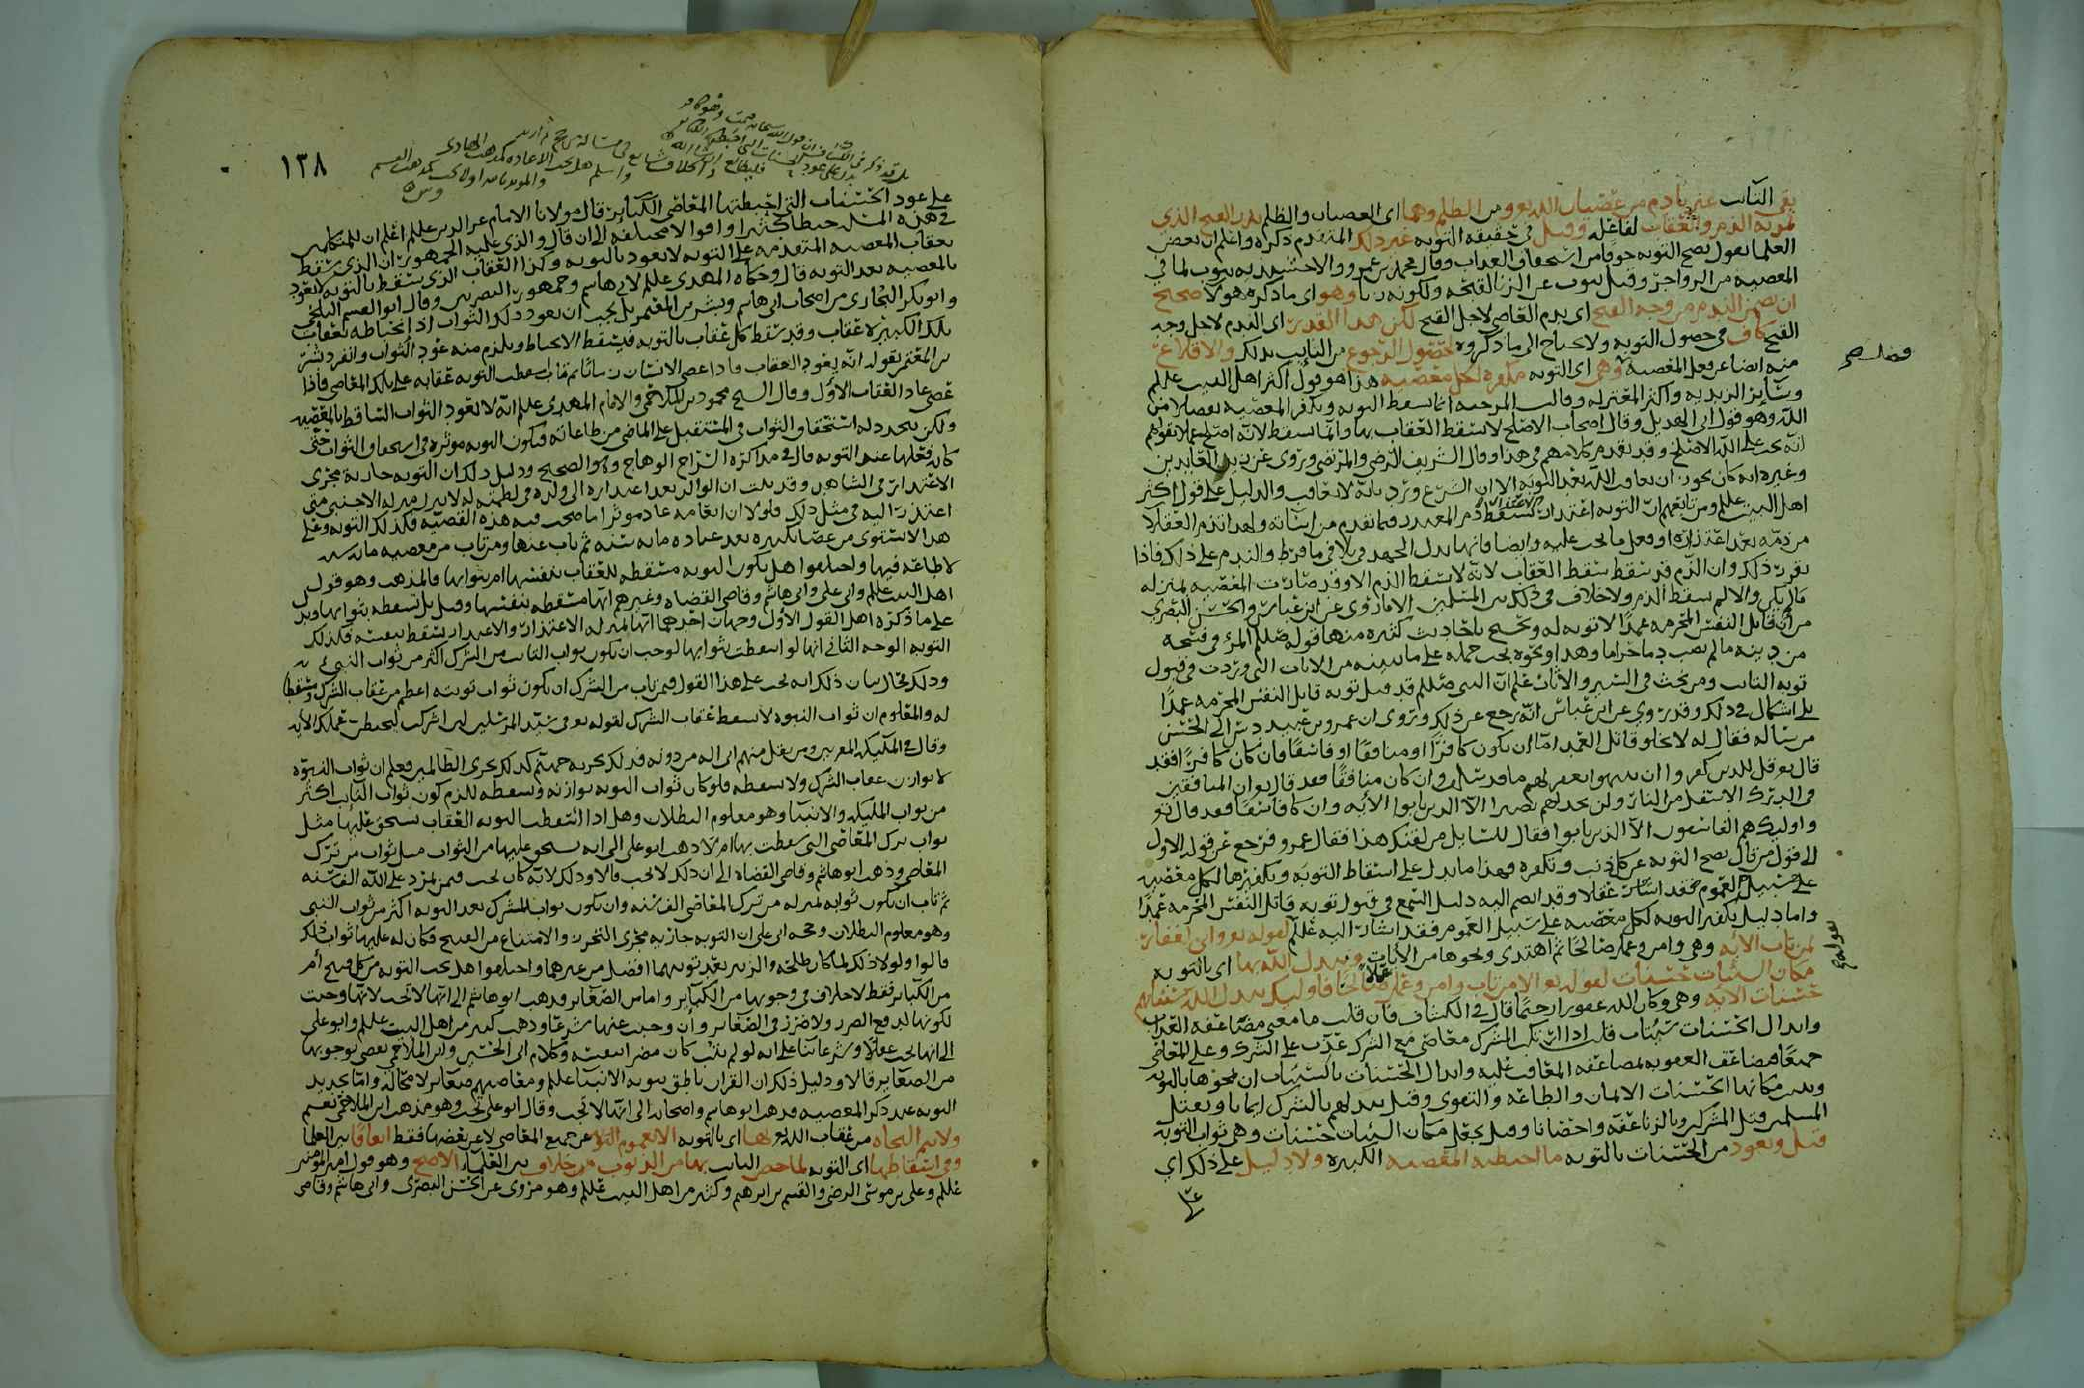 بقي التائب غير نادم من عصيان الله تعالى ومن الظلم وهما اى العصيان والظلم
لفاعله وقيل في حقيقه التوبه غير ذلك المتقدم ذكره واعلم ان بعض
العلما يقول تصح التوبه خوفا من استحقاق العذاب وقال محمد بن عمرو والاخشيديه يتوب لما في
المعصيه من الزواجر وقيل يتوب عن الزنا لقبحه ولكونه زنا وهو اى ما ذكره هولا صحيح
ان تضمن الندم من وجه القبح اى ندم العاصي لاجل القبح لكن هذا القدر اى الندم لاجل وجه
القبح كاف في حصول التوبه ولا يحتاج الى ما ذكروه لحصول الرجوع من التايب بذلك والاقلاع
منه ايضا عن فعل المعصيه وهي اى التوبه مكفره لكل معصيه هذا هو قول اكثر اهل البيت عليلم
وسائر الزيديه واكثر المعتزله وقالت المرجئه انما تسقط التوبه وتكفر المعصيه تفضلا من
الله وهو قول ابي الهذيل وقال اصحاب الاصلح لا تسقط العقاب بها وانما سقط لانه اصلح
انه يجب على الله الاصلح وقد تقدم كلامهم في هذا وقال الشريف الرضي والمرتضى وروى عن زين العابدين
وغيره انه كان يجوز ان يعاقب الله بعد التوبه الا ان الشرع ورد بانه لا يعاقب والدليل على قول اكثر
اهل البيت عليلم ومن تابعهم ان التوبه اعتذار
من ذمه بعد اعتذاره وفعل ما يجب عليه وايضا فانها بذل الجهد في تلافي ما فرط والندم على ذلك فاذا
تقرر ذلك وان الذم قد سقط سقط العقاب لانه لا يسقط الذم الا وقد صارت المعصيه بمنزله
ما لم يكن والا لم يسقط الذم ولا خلاف في ذلك بين المسلمين الا ما روى عن ابن عباس والحسن البصري
من ان قاتل النفس المحرمه عمدا لا توبه له ويحتج باحاديث كثيره منها قوله صلعم المرؤ في فسحه
من دينه ما لم يصب دما حراما وهذا ونحوه يجب حمله على ما يبينه من الايات التي وردت في قبول
توبه التائب ومن بحث في السير والاثار علم ان النبي صلعم قد قبل توبه قاتل النفس المحرمه عمدا
بلى اشكال في ذلك وقد روي عن ابن عباس انه رجع عن ذلك وروى ان عمرو بن عبيد دس الى الحسن
من ساله فقال له لا يخلو قاتل العمد اما ان يكون كافرا او منافقا او فاسقا فان كان كافرا فقد
قال تعالى قل للذين كفروا ان ينتهوا يغفر لهم ما قد سلف وان كان منافقا فقد قال تعالى ان المنافقين
في الدرك الاسفل من النار ولن تجد لهم نصيرا الا الذين تابوا الايه وان كان فاسقا فقد قال تعالى
واوليك هم الفاسقون الا الذين تابوا فقال للسايل من لقنك هذا فقال عمرو فرجع عن قوله الاول
الى قول من قال تصح التوبه عن كل ذنب وتكفره فهذا ما يدل على اسقاط التوبه وتكفيرها لكل معصيه
على سبيل العموم فقد اشار عقلا وقد انضم اليه دليل السمع في قبول توبه قاتل النفس المحرمه عمدا
واما دليل تكفير التوبه لكل معصيه على سبيل العموم فقد اشار اليه عللم لقوله تعالى واني لغفار
لمن تاب الايه وهي وامن وعمل صالحا ثم اهتدى ونحوها من الايات ويبدل الله بها اى بالتوبه
مكان السيئات حسنات لقوله تعالى الا من تاب وامن وعمل عملا صالحا فاوليك يبدل الله سيئاتهم
حسنات الايه وهي وكان الله غفورا رحيما قال في الكشاف فان قلت ما معنى مضاعفه العذاب
وابدال الحسنات سيئات قلت اذا ارتكب المشرك معاصي مع الشرك عذب على الشرك وعلى المعاصي
جميعا فيضاعف العقوبه لمضاعفه المعاقب عليه وابدال الحسنات بالسيئات ان يمحوها بالتوبه
ويثبت مكانها الحسنات الايمان والطاعه والتقوى وقيل يبدلهم بالشرك ايمانا وبقتل
المسلمين قتل المشركين وبالزنا عفه واحصانا وقيل يجعل مكان السيئات حسنات وهي ثواب التوبه
قيل ويعود من الحسنات بالتوبه ما احبطته المعصيه الكبيره ولا دليل على ذلك اي
على
١٣٨
على عود الحسنات التي احبطتها المعاصي الكبائر قال مولانا الامام عز الدين عللم اعلم ان للمتكلمين
في هذه المسئله خبطا كثيرا واقوالا مختلفه الى ان قال والذي عليه الجمهور ان الذي سقط
بعقاب المعصيه المتقدمه على التوبه لا يعود بالتوبه وكذا العقاب الذي سقط بالتوبه لا يعود
بالمعصيه بعد التوبه قال وحكاه المهدي عللم لابي هاشم وجمهور البصريين وقال ابو القسم البلخي
وابو بكر البخاري من اصحاب ابي هاشم وبشر بن المعتمر بل يجب ان يعود ذلك الثواب اذ احباطه بعقاب
تلك الكبيره عقاب وقد سقط كل عقاب بالتوبه فيسقط الاحباط ويلزم منه عود الثواب وانفرد بشر
بن المعتمر بقوله انه يعود العقاب فاذا عصى الانسان زمانا ثم تاب اسقطت التوبه عقابه على تلك المعاصي فاذا
عصى عاد العقاب الاول وقال الشيخ محمود بن الملاحمي والامام المهدي عللم انه لا يعود الثواب الساقط بالمعصيه
ولكن يتجدد له استحقاق الثواب في المستقبل على الماضي من طاعاته فتكون التوبه موثره في استحقاق الثواب حتى
كانه فعلها عند التوبه قال في مذاكرة الشراح الوهاج وهو الصحيح ودليل ذلك ان التوبه جاريه مجرى
الاعتذار في الشاهد وقد ثبت ان الوالد بعد اعتذاره الى ولده في لطمته له لا ينزل منزله الاجنبي متى
اعتذر اليه في مثل ذلك فلولا ان انعامه عاد موثرا ما صحت فيه هذه القضيه فكذلك التوبه وعلى
هذا لا يستوي من عصا بكبيره بعد عباده مايه سنه ثم تاب عنها ومن تاب من معصيه مايه سنه
لا طاعه فيها واختلفوا هل تكون التوبه مسقطه للعقاب بنفسها ام بثوابها فالمذهب وهو قول
اهل البيت عللم وابي علي وابي هاشم وقاضي القضاه وغيرهم انها مسقطه بنفسها وقيل بل تسقطه بثوابها ويدل
على ما ذكره اهل القول الاول وجهان احدهما انها بمنزله الاعتذار والاعتذار يسقط بنفسه فكذلك
التوبه الوجه الثاني انها لو اسقطت بثوابها لوجب ان يكون ثواب التائب من الشرك اكثر من ثواب النبي
وذلك محال بيان ذلك انه يجب على هذا القول فيمن تاب من الشرك ان يكون ثواب توبته اعظم من عقاب الشرك ومسقطا
له والمعلوم ان ثواب النبوه لا يسقط عقاب الشرك لقوله تعالى في سيد المرسلين لئن اشركت ليحبطن عملك الايه
وقال في المليكه المقربين ومن يقل منهم اني اله من دونه فذلك نجزيه جهنم كذلك نجزي الظالمين فعلم ان ثواب النبوه
لا يوازن عقاب الشرك ولا يسقطه فلو كان ثواب التوبه يوازنه ويسقطه للزم كون ثواب التائب اكثر
من ثواب المليكه والانبيا وهو معلوم البطلان وهل اذا اسقطت التوبه العقاب يستحق عليها مثل
ثواب ترك المعاصي التي سقطت بها ام لا ذهب ابو علي الى انه يستحق عليها من الثواب مثل ثواب من ترك
المعاصي وذهب ابو هاشم وقاضي القضاه الى ان ذلك لا يجب قالا وذلك لانه كان يجب فيمن تمرد على الله الف سنه
ثم تاب ان يكون ثوابه بمنزله من ترك المعاصي الف سنه وان يكون ثواب المشرك بعد التوبه اكثر من ثواب النبي
وهو معلوم البطلان وحجه ابي علي ان التوبه جاريه مجرى التحرز والامتناع من القبيح فكان له عليها ثواب ذلك
قالوا ولولا ذلك لما كان طلحه والزبير بعد توبتهما افضل من غيرهما واختلفوا هل تجب التوبه من كل قبيح أم
من الكبائر فقط لا خلاف في وجوبها من الكبائر واما من الصغائر فذهب ابو هاشم الى انها لا تجب لانها وجبت
لكونها لدفع الضرر ولا ضرر في الصغائر وان وجبت عنها شرعا وذهب كثير من اهل البيت عللم وابو علي
الى انها تجب عقلا وشرعا بنا على انه لو لم يتب كان مصرا وكلام ابي الحسين وابن الملاحمي يقضي بوجوبها
من الصغائر قالا ودليل ذلك ان القران ناطق بتوبه الانبيا عللم ومعاصيهم صغائر لا محاله واما تجديد
التوبه عند ذكر المعصيه فذهب ابو هاشم واصحابه الى انها لا تجب وقال ابو علي تجب وهو مذهب ابن الملاحمي نعم
ولا تتم النجاه من عقاب الله تعالى بها اى بالتوبه الا بعموم التوبه عن جميع المعاصي لا عن بعضها فقط اتفاقا بين العلما
وفي اسقاطها اى التوبه لما خص التائب بها من الذنوب خلاف بين العلماء الاصح وهو قول امير المومنين
عللم وعلي بن موسى الرضى والقسم بن ابرهيم وكثير من اهل البيت عللم وهو مروى عن الحسن البصرى وابي هاشم وقاضي